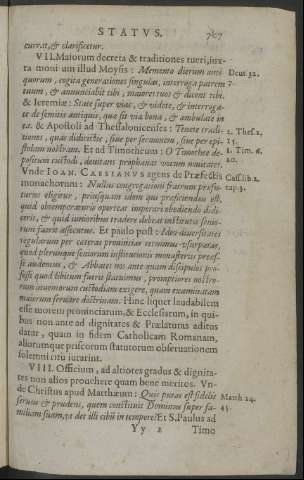 STATVS.
707
currat, & clarificetur.
VII. Maiorum decreta & traditiones tueri, iux-
ta moni um illud Moysis: Memento dierum anti
Deut 32.
quorum, cogita generationes singulas, interroga patrem
7.
tuum, & annuntiabit tibi, maiores tuos & dicent tibi.
& Ieremiæ: State super vias, & videte, & interroga-
te de semitis antiquis, quæ sit via bona, & ambulate in
ea. & Apostoli ad Thessalonicenses: Tenete tradi-
2. Thes. 2.
tiones, quas didicistis, siue per sermonem, siue per epi-
15.
stolam nostram. Et ad Timotheum: O Timothee de-
1. Tim. 6.
positum custodi, deuitans prophanas vocum nouitates.
20.
Vnde IOAN. CASSIANVS agens de Præfectis
Cass. lib. 2.
monachorum: Nullus congregationi fratrum præfu-
cap. 3.
turus eligitur, priusquam idem qui præficiendus est,
quid obtemperaturis oporteat imperari obediendo didi-
cerit, & quid iunioribus tradere debeat institutis senio-
rum fuerit assecutus. Et paulo post: Ideo diuersitates
regularum per cæteras prouincias cernimus vsurpatas,
quod plerunque seniorum institutionis monasteriis præes-
se audemus, & Abbates nos ante quam discipulos pro-
fessi quod libitum fuerit statuimus, promptiores nostro-
rum inuentorum custodiam exigere, quam examinatam
maiorum seruare doctrinam. Hinc liquet laudabilem
esse morem prouinciarum, & Ecclesiarum, in qui-
bus non ante ad dignitates & Prælaturas aditus
datur, quam in fidem Catholicam Romanam,
aliorumque priscorum statutorum obseruationem
solemni ritu iurarint.
VIII. Officium, ad altiores gradus & dignita-
tes non alios prouehere quam bene meritos. Vn-
de Christus apud Matthæum: Quis putas est fidelis
Matth 24.
seruus & prudens, quem constituit Dominus super fa-
45.
miliam suam, vt det illi cibũ in tempore? Et S. Paulus ad
Yy 2
Timo